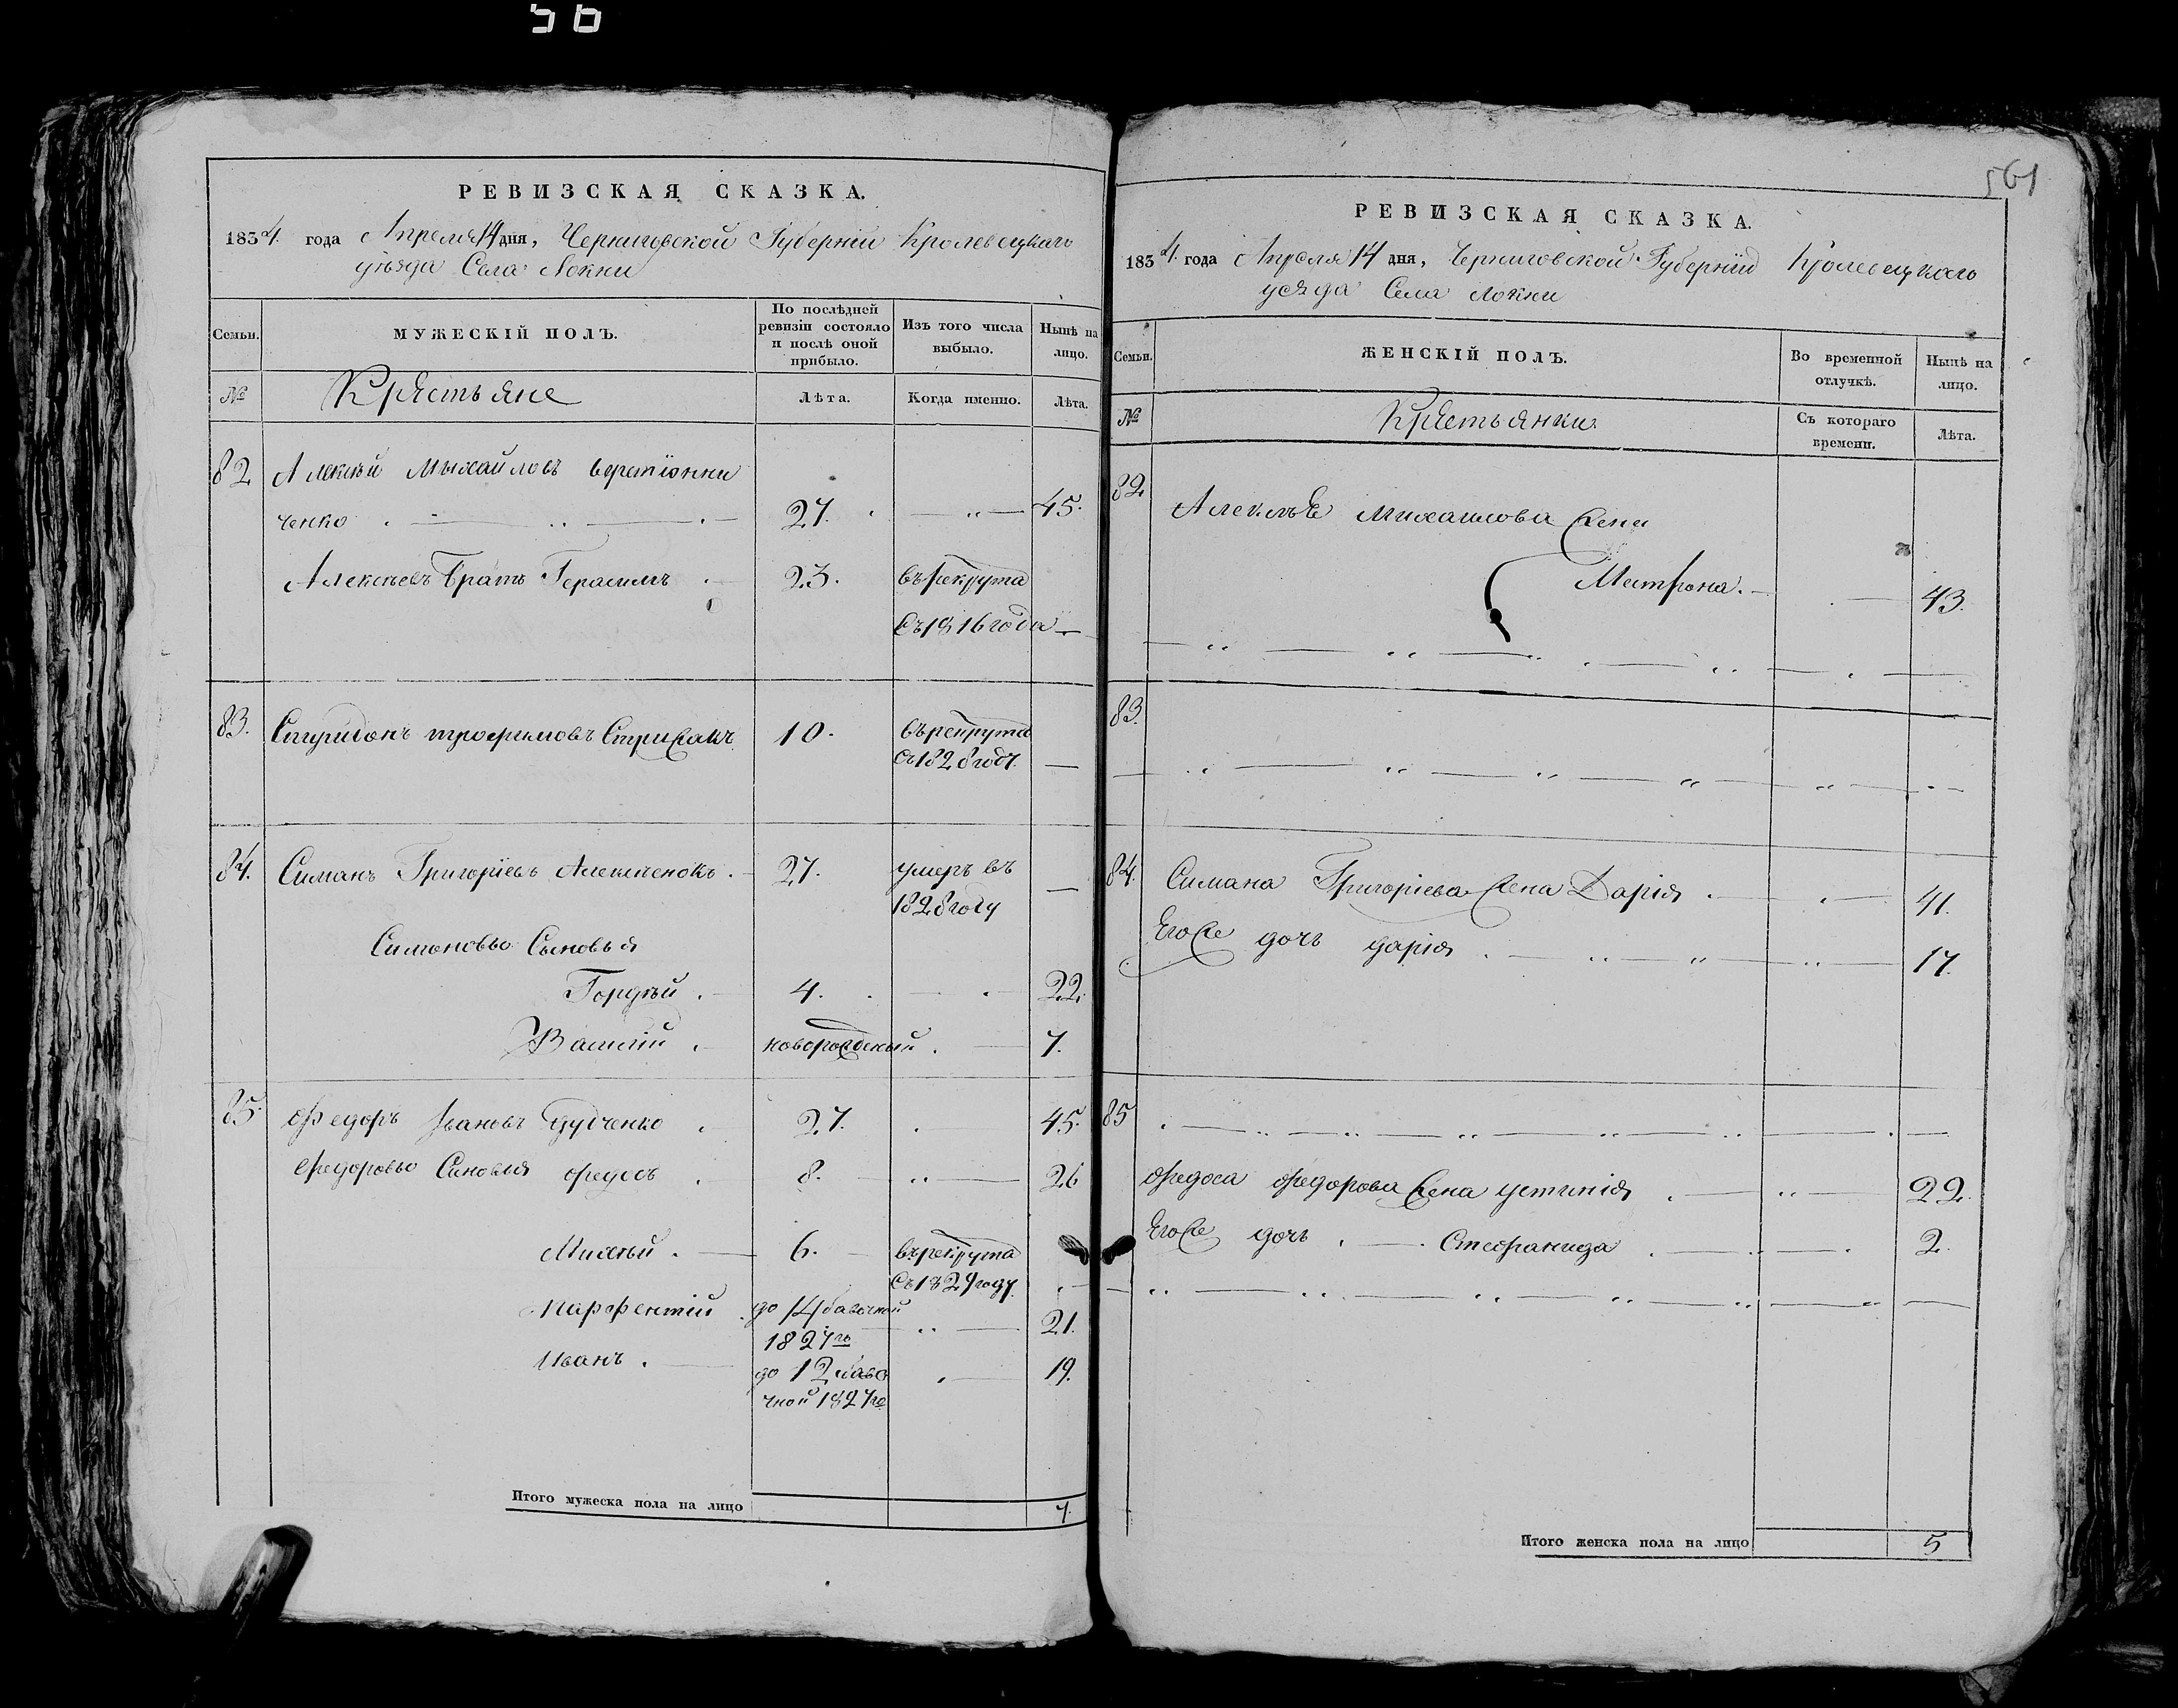 РЕВИЗСКАЯ СКАЗКА.
1834. года Апреля 14 дня, Черниговской Губерніи Кролевецкаго
уѣзда Села Локни
Семьи.
МУЖЕСКІЙ ПОЛЪ.
По послѣдней
ревизіи состояло
и послѣ оной
прибыло.
Изъ того числа
выбыло.
Нынѣ на
лицо.
№
Крестьяне
Лѣта.
Когда именно.
Лѣта.
82 Алексѣй Михайловъ
ченко 27. 45.
Алексѣевъ братъ Герасимъ 23. въ рекрута
съ 1816 года
83. Спиридонъ трофимовъ 10. въ рекрута
съ 1828 году.
84. Симанъ Григоріевъ 27. умеръ въ
1828 году
Симоновы Сыновья
Гордѣй 4. 22.
Василій новорожденный 7.
85. Федоръ Ивановъ Дудченко 27. 45.
Федоровы Сыновья Федосъ 8. 26
Михѣй 6. въ рекрута
съ 1829 году.
Парфентій до 14 бавочной
1827го 21.
Иванъ до 12 бавоч
чной 1827го 19.
Итого мужеска пола на лицо 7.
561
РЕВИЗСКАЯ СКАЗКА.
1834. года Апреля 14 дня, Черниговской Губерніи Кролевецкаго
уезда Села Локни
Семьи.
ЖЕНСКІЙ ПОЛЪ.
Во временной
отлучкѣ.
Нынѣ на
лицо.
№
Крестьянки.
Съ котораго
времени.
Лѣта.
82 Алексѣя Михайлова жена
Матрона. 43.
83.
84. Симана Григоріева жена Дарія 41.
Его же дочь дарія 17.
85
Федоса Федорова жена устинія 22.
Его же дочь Стефанида 2.
Итого женска пола на лицо 5